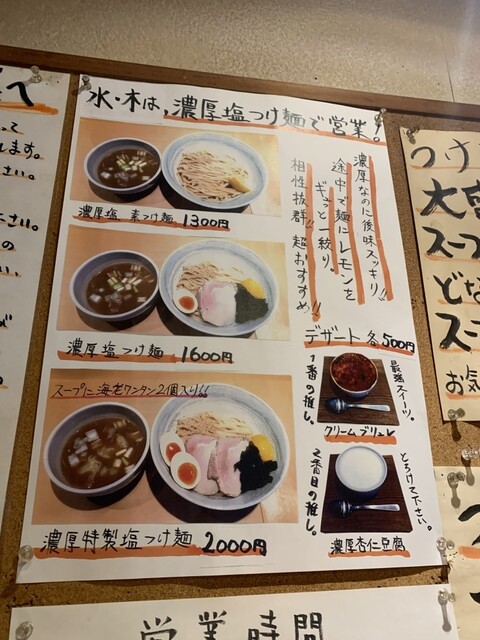 水・木は、濃厚塩つけ麺で営業！
濃厚塩 素つけ麺 1300円
濃厚塩つけ麺 1600円
スープに海老ワンタン2個入り!!
濃厚特製塩つけ麺 2000円
濃厚なのに後味スッキリ!!
途中で麺にレモンを
ギュっと一絞り。
相性抜群!!超おすすめ!!
デザート各500円
最強スイーツ。
1番の推し。
クリームブリュレ
とろけて下さい。
2番目の推し。
濃厚杏仁豆腐
営業時間
つけ
スープ
どな
スー
お気